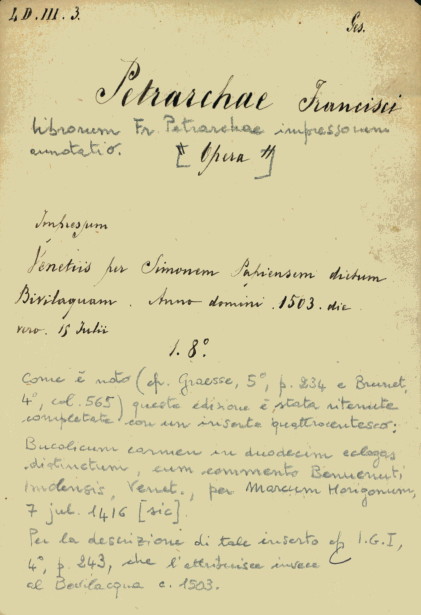 L D. III. 3.
Ges.
Petrarchae Francisci
librorum Fr. Petrarchae impressorum
annotatio. ["Opera"]
Impressum
Venetiis per Simonem Papiensem dictum
Bivilaquam. Anno domini. 1503. die
vero. 15 Iulii
1. 8°.
Come è noto (cfr. Graesse, 5°, p. 234 e Brunet,
4°, col. 565) questa edizione è stata ritenuta
completata con un inserto quattrocentesco:
Bucolicum carmen in duodecim eclogas
distinctum, cum commento Benvenuti
Imolensis, Venet., per Marcum Horigonum,
7 jul. 1416 [sic].
Per la descrizione di tale inserto cfr I.G.I,
4°, p. 243, che l'attribuisce invece
al Bevilacqua c. 1503.